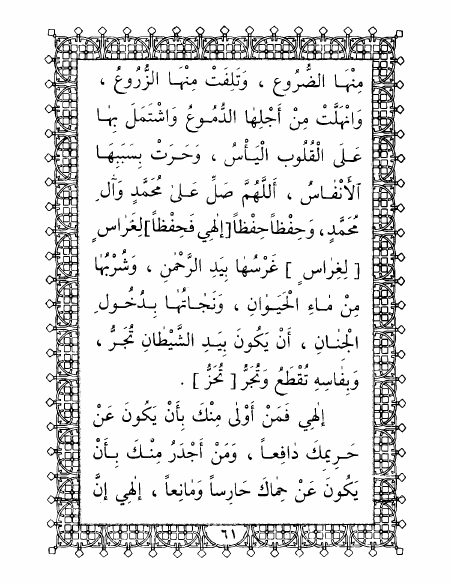 مِنْهَا الضُّرُوع ، وَتَلِفَتْ مِنْهَا الزُّرُوعُ ،
وَانْهَلَّتْ مِنْ أَجْلِهَا الدُّمُوعُ وَاشْتَمَلَ بِهَا
عَلَى الْقُلُوبِ الْيَأْسُ ، وَحَرَتْ بِسَبَبِهَا
الْأَنْفَاسُ ، أَللَّهُمَّ صَلِّ عَلَىٰ مُحَمَّدٍ وَآلِ
مُحَمَّدٍ، وَحِفْظاً حِفْظاً [إِلٰهِي فَحِفْظاً] لِغَرَاسٍ
[ لِغِراسٍ ] غَرْسُهَا بِيَدِ الرَّحْمٰنِ ، وَشُرْبُهَا
مِنْ مَاءِ الْحَيَوَانِ ، وَنَجَاتُهَا بِدُخُولِ
الْجِنَانِ ، أَنْ يَكُونَ بِيَدِ الشَّيْطَانِ تُجَرُّ ،
وَبِفَاسِهِ تُقْطَعُ وَتُجَرُّ [ تُحَزُّ ] .
إِلٰهِي فَمَنْ أَوْلىٰ مِنْكَ بِأَنْ يَكُونَ عَنْ
حَرِيمِكَ دَافِعاً ، وَمَنْ أَجْدَرُ مِنْكَ بِأَنْ
يَكُونَ عَنْ حِمَاكَ حَارِساً وَمَانِعاً ، إِلٰهِي إِنَّ
٦١